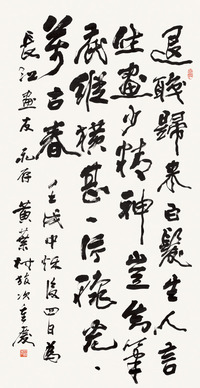 退職歸來白髮生人言
作畫少精神豈為筆
底縱橫甚一片
萬古春 壬戌中秋後四日為
長江畫友存 黃葉村旅次重慶